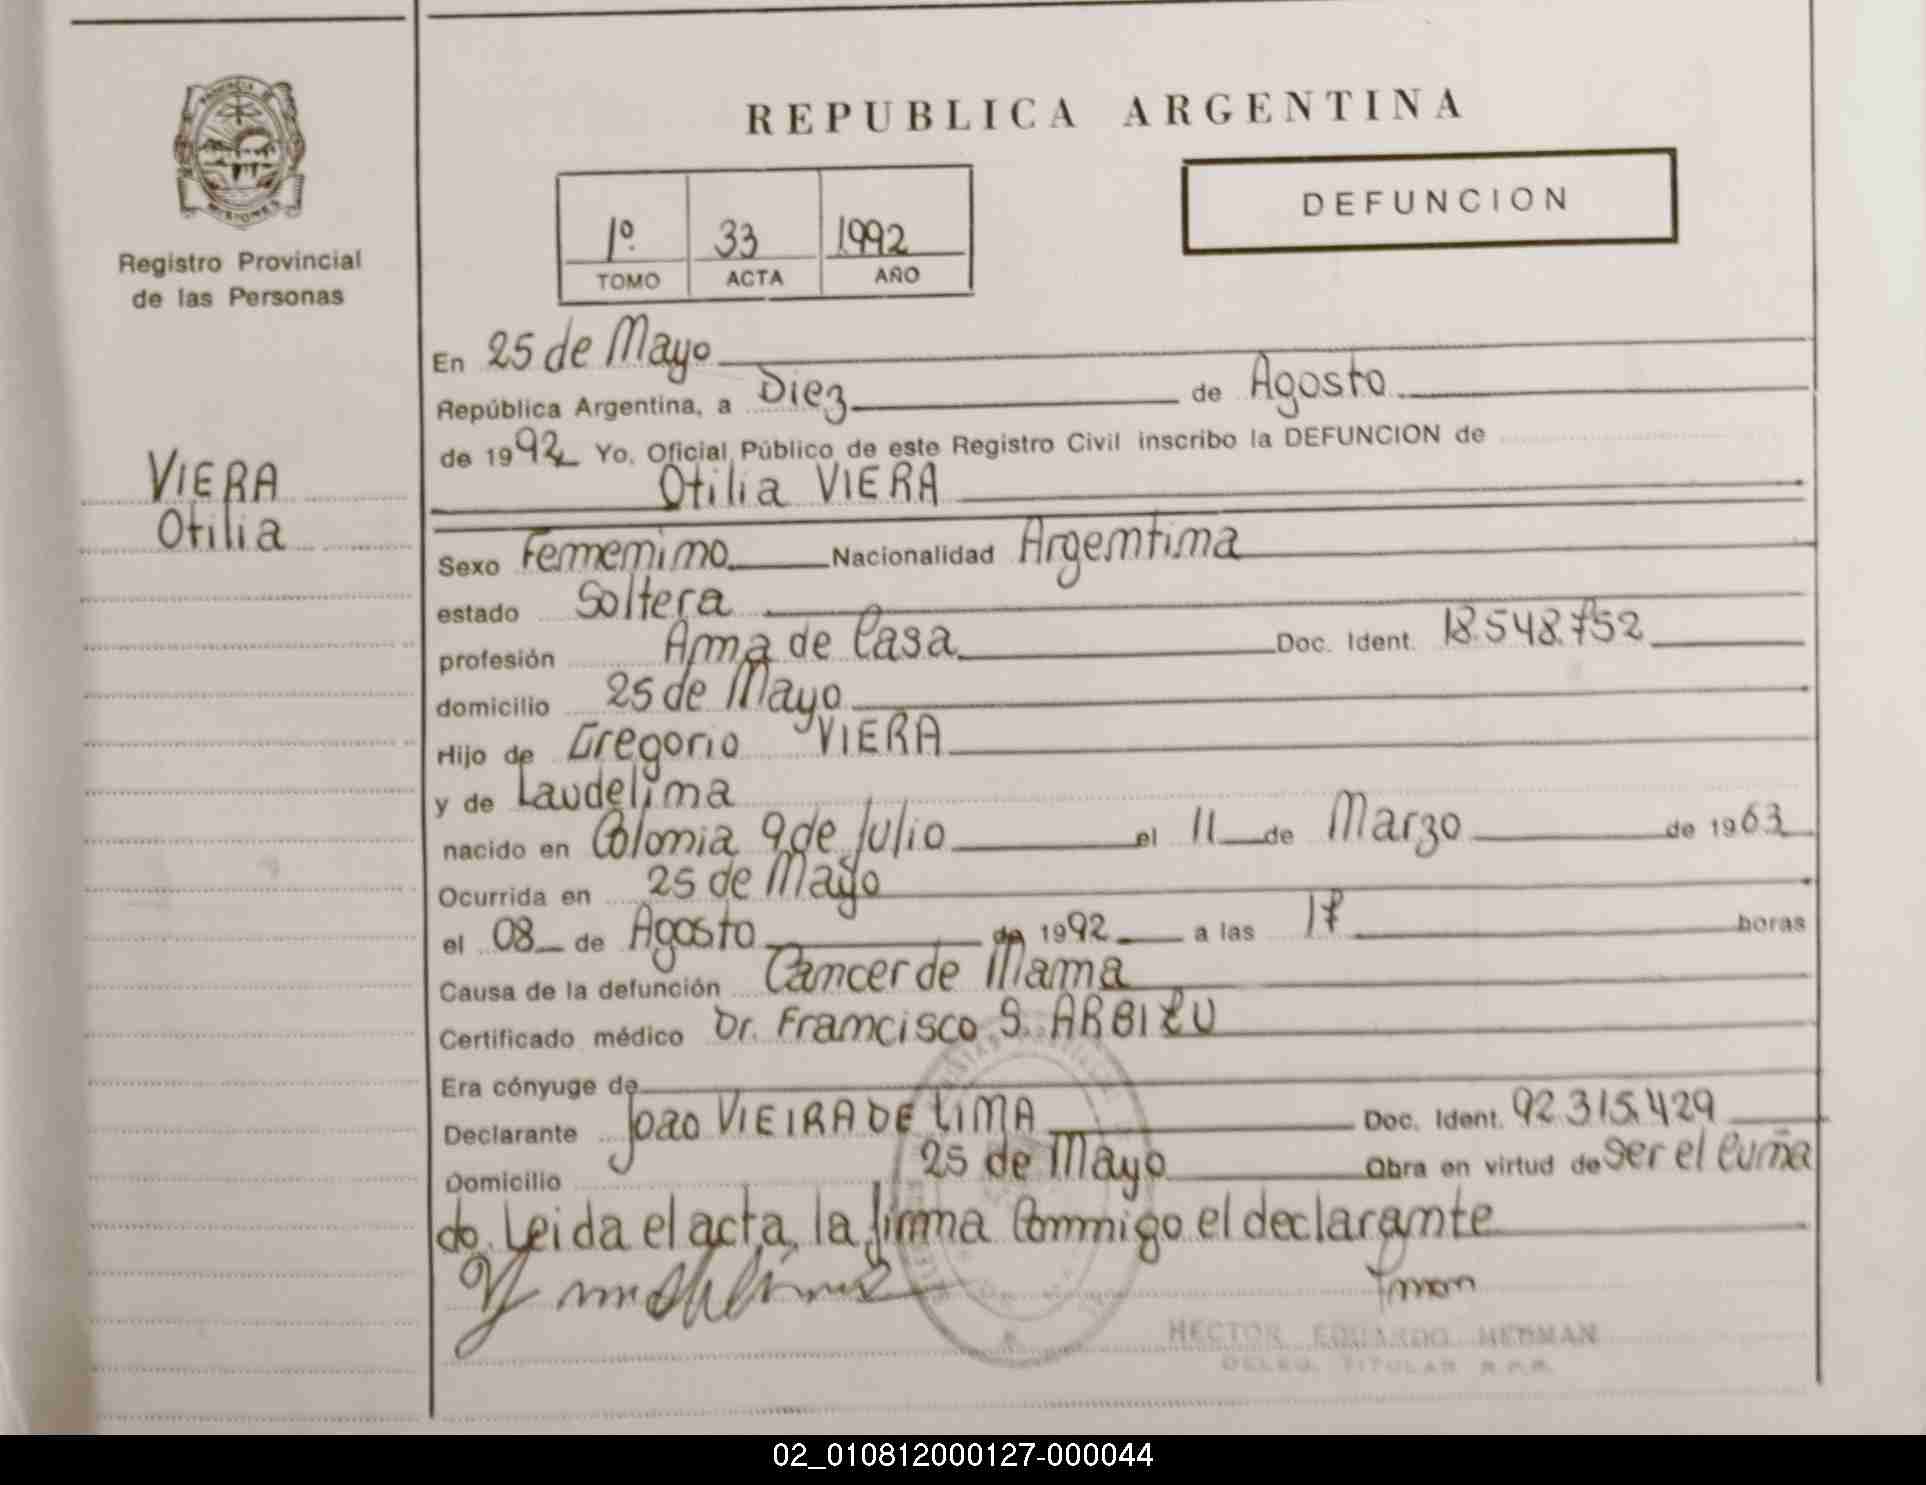 PROVINCIA DE
MISIONES
Registro Provincial
de las Personas
VIERA
Otilia
REPUBLICA ARGENTINA
1º 33 1992
TOMO ACTA AÑO
DEFUNCION
En 25 de Mayo
República Argentina, a Diez de Agosto
de 1992 Yo, Oficial Público de este Registro Civil inscribo la DEFUNCION de
Otilia VIERA
Sexo Femenino Nacionalidad Argentina
estado Soltera
profesión Ama de Casa Doc. Ident. 18.548.752
domicilio 25 de Mayo
Hijo de Gregorio VIERA
y de Laudelina
nacido en Colonia 9 de Julio el 11 de Marzo de 1963
Ocurrida en 25 de Mayo
el 08 de Agosto de 1992 a las 17 horas
Causa de la defunción Cancer de Mama
Certificado médico Dr. Francisco S. ARBIZU
Era cónyuge de
Declarante Joao VIEIRA DE LIMA Doc. Ident. 92.315.429
Domicilio 25 de Mayo Obra en virtud de ser el Cuña
do. Leida el acta, la firma Conmigo el declarante
HECTOR EDUARDO HEDMAN
DELEG. TITULAR R.P.P.
02_010812000127-000044